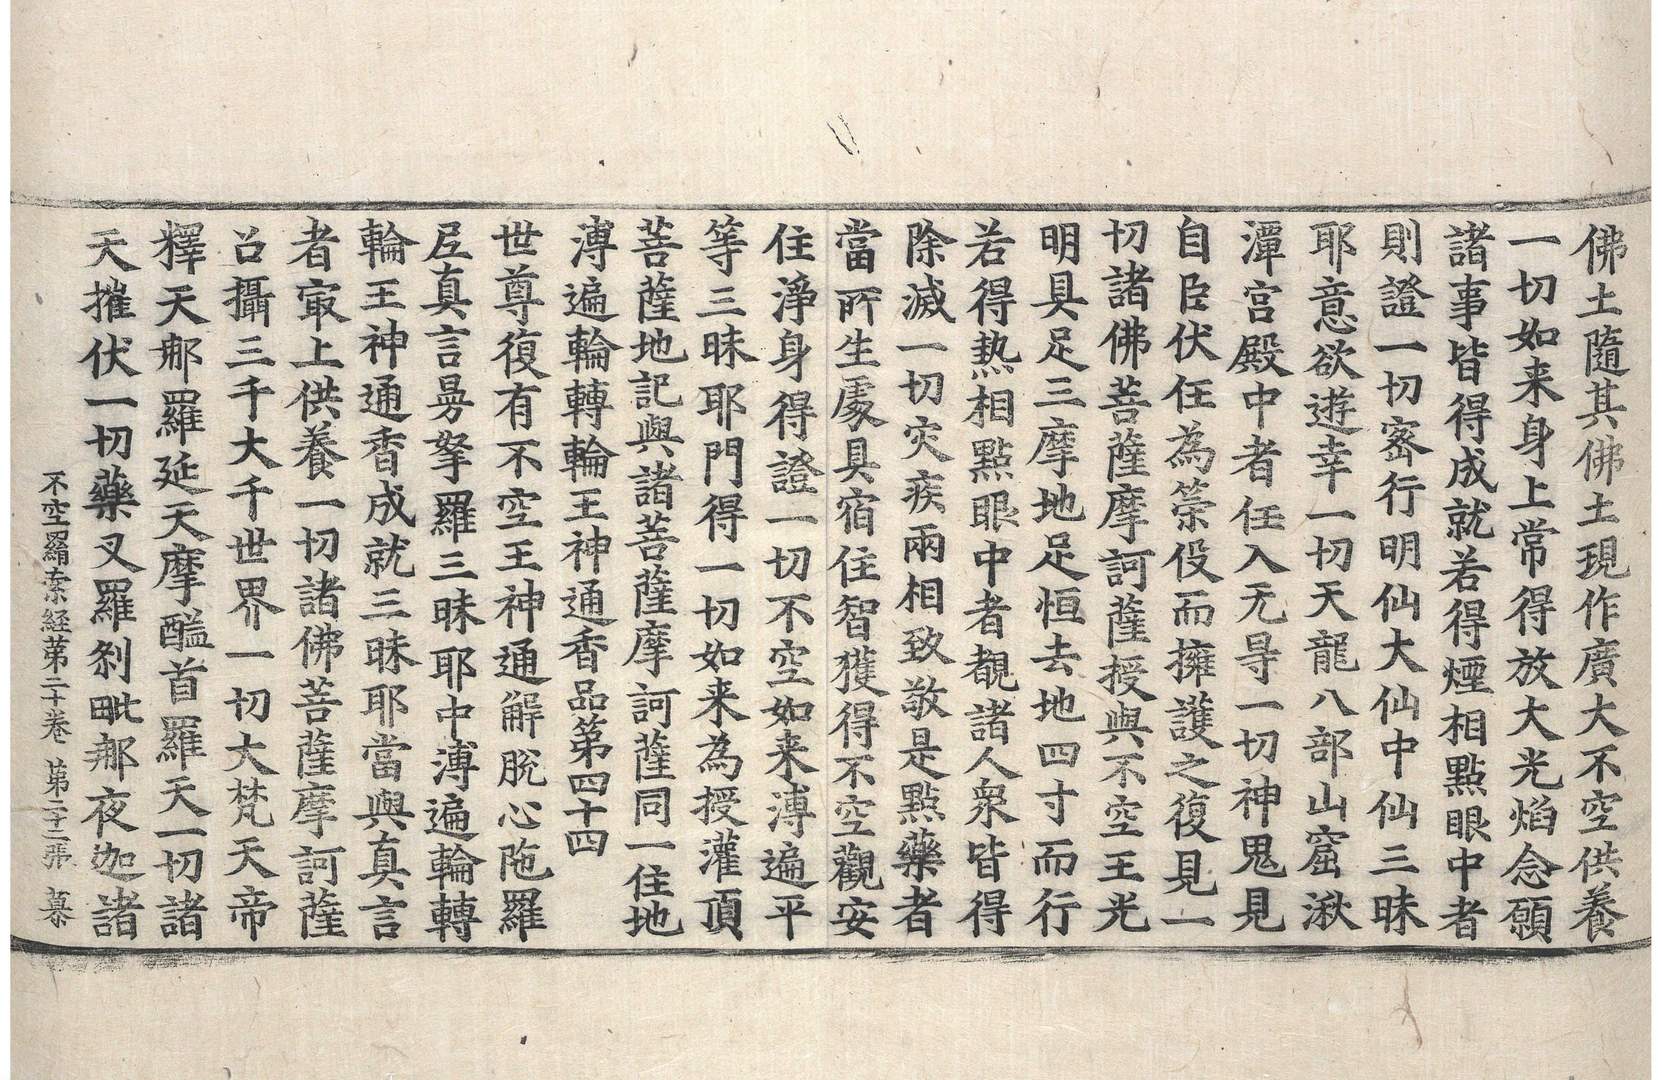 佛土隨其佛土現作廣大不空供養
一切如来身上常得放大光焰念願
諸事皆得成就若得煙相點眼中者
則證一切密行明仙大仙中仙三昧
耶意欲遊幸一切天龍八部山窟湫
潭宮殿中者任入无㝵一切神鬼見
自臣伏任為策役而擁護之復見一
切諸佛菩薩摩訶薩授與不空王光
明具足三摩地足恒去地四寸而行
若得熱相點眼中者覩諸人衆皆得
除滅一切灾疾兩相致敬是點藥者
當所生處具宿住智獲得不空觀安
住淨身得證一切不空如来溥遍平
等三昧耶門得一切如来為授灌頂
菩薩地記與諸菩薩摩訶薩同一住地
溥遍輪轉輪王神通香品第四十四
世尊復有不空王神通解脫心陁羅
尼真言曼拏羅三昧耶中溥遍輪轉
輪王神通香成就三昧耶當與真言
者㝡上供養一切諸佛菩薩摩訶薩
召攝三千大千世界一切大梵天帝
釋天那羅延天摩醯首羅天一切諸
天摧伏一切藥叉羅剎毗那夜迦諸
不空羂索経第二十卷 第二十二張 慕